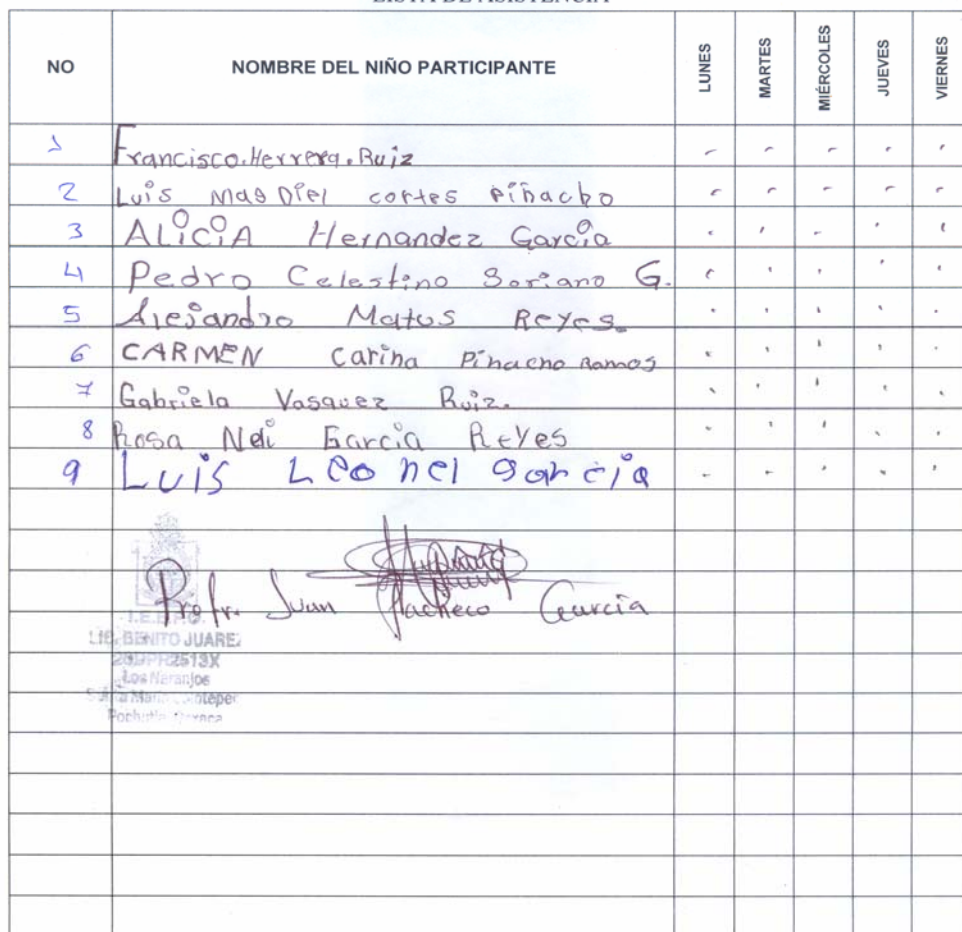 LISTA DE ASISTENCIA
NO NOMBRE DEL NIÑO PARTICIPANTE LUNES MARTES MIÉRCOLES JUEVES VIERNES
1 Francisco.Herrera.Ruiz
2 Luis Magdiel cortes piñacho
3 ALiCiA Hernandez García
4 Pedro Celestino Soriano G.
5 Alejandro Matus Reyes.
6 CARMEN Carina Pinacho Ramos
7 Gabriela Vasquez Ruiz.
8 Rosa Neli García Reyes
9 Luis Leonel garcia
Profr. Juan Pacheco García
LIC. BENITO JUAREZ
Los Naranjos